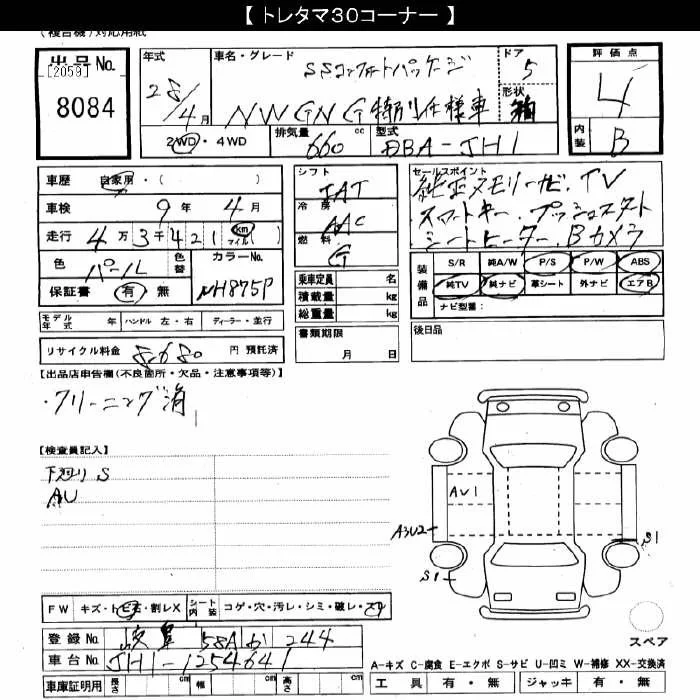 【 トレタマ30コーナー 】
(複合機)対応用紙
出品No. [2059] 8084
年式 28/4月
車名・グレード SSコンフォートパッケージ
NWGN G特別仕様車
ドア 5
形状 箱
評価点 4
内装 B
2WD・4WD
排気量 660 cc
型式 DBA-JH1
車歴 自家用・( )
車検 9年 4月
走行 4万3千421 km マイル( )
色 パール 色替 カラーNo. NH875P
保証書 有 無
シフト IAT
冷房 AAC
燃料 G
乗車定員 名
積載量 kg
総重量 kg
書類期限 月 日
セールスポイント
純正メモリーナビ.TV
スマートキー.プッシュスタート
シートヒーター.Bカメラ
装備品 S/R 純A/W P/S P/W ABS
純TV 純ナビ 革シート 外ナビ エアB
ナビ型番:
後日品
モデル年式 年 ハンドル 左・右 ディーラー・並行
リサイクル料金 8,680 円 預託済
【出品店申告欄(不良箇所・欠品・注意事項等)】
・クリーニング済
【検査員記入】
下廻り S
AU
AU1
A3U2
S1
S1
スペア
FW キズ・トビ石・割レX シート内装 コゲ・穴・汚レ・シミ・破レ・スレ
登録No. 岐阜 58A か 244
車台No. JH1-1254641
車庫証明用 長さ cm 幅 cm 高さ cm
A-キズ C-腐食 E-エクボ S-サビ U-凹ミ W-補修 XX-交換済
工具 有・無 ジャッキ 有・無